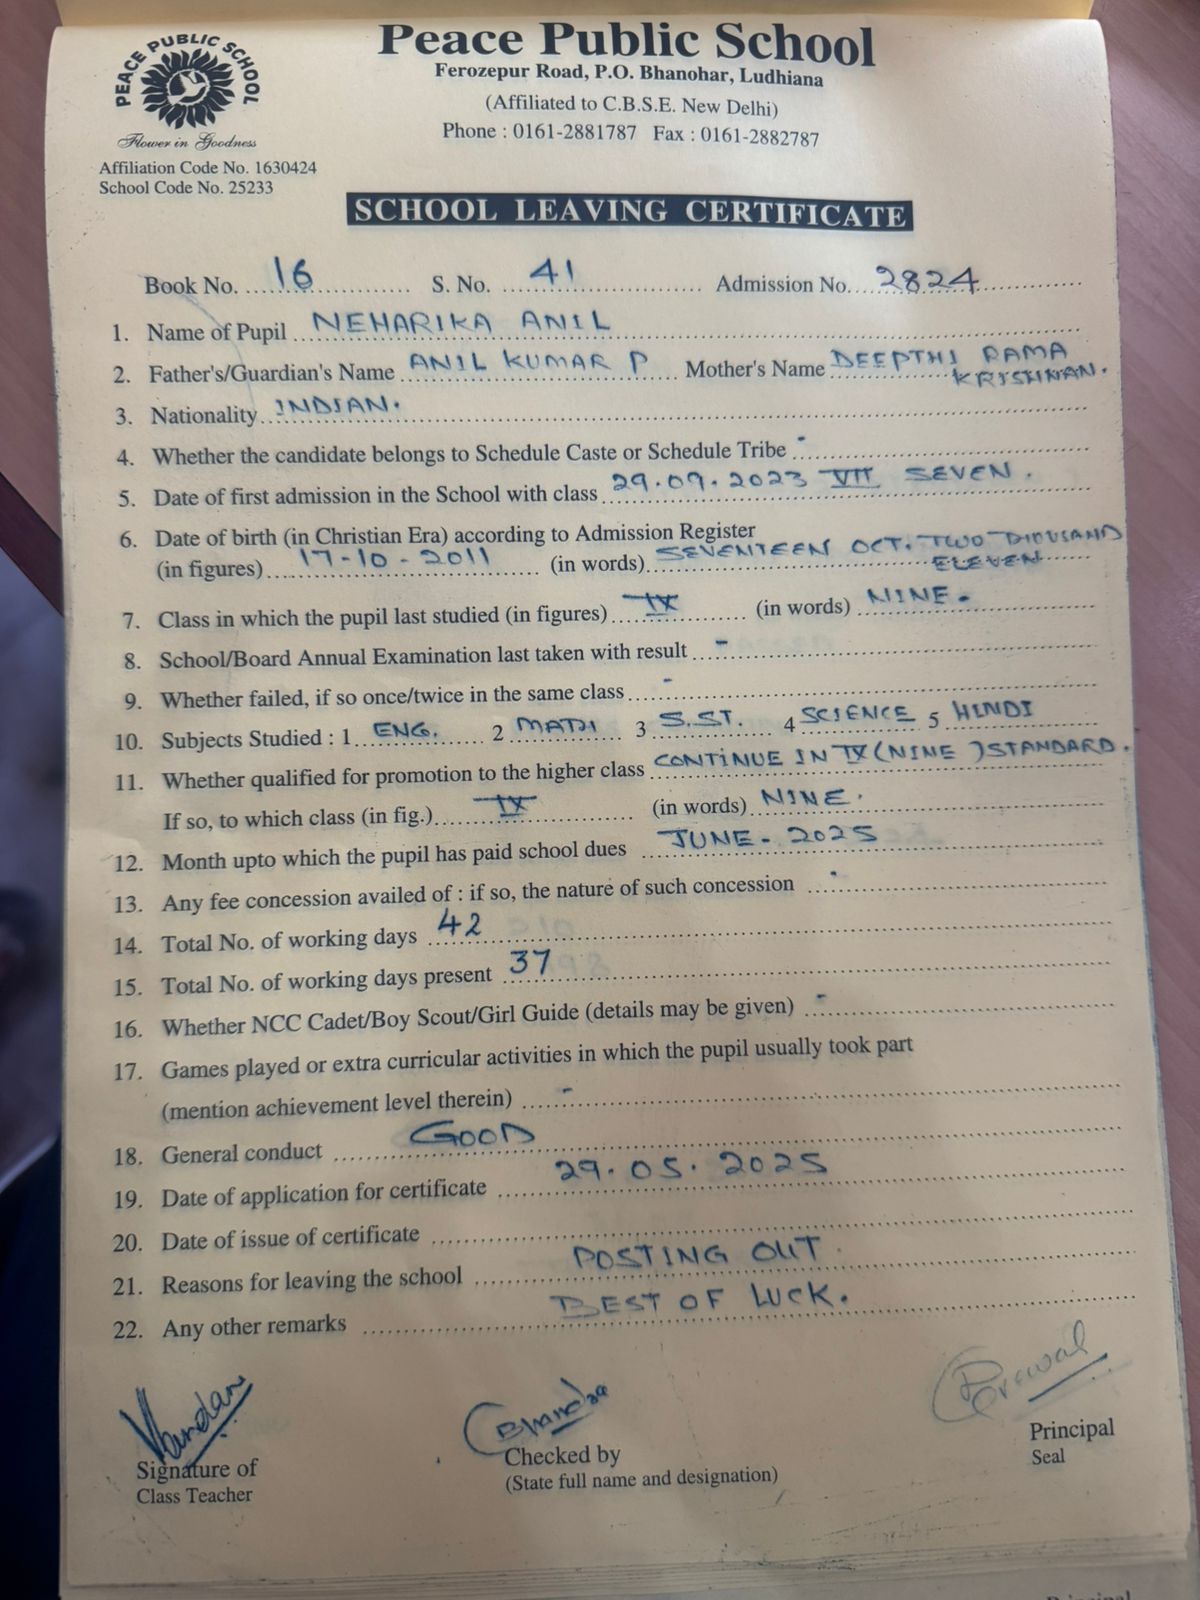 PEACE PUBLIC SCHOOL
Flower in Goodness
Affiliation Code No. 1630424
School Code No. 25233
Peace Public School
Ferozepur Road, P.O. Bhanohar, Ludhiana
(Affiliated to C.B.S.E. New Delhi)
Phone : 0161-2881787 Fax : 0161-2882787
SCHOOL LEAVING CERTIFICATE
Book No. 16 S. No. 41 Admission No. 2824
1. Name of Pupil NEHARIKA ANIL
2. Father's/Guardian's Name ANIL KUMAR P Mother's Name DEEPTHI RAMA
KRISHNAN.
3. Nationality INDIAN.
4. Whether the candidate belongs to Schedule Caste or Schedule Tribe -
5. Date of first admission in the School with class 29.09.2023 VII SEVEN.
6. Date of birth (in Christian Era) according to Admission Register
(in figures) 17-10-2011 (in words) SEVENTEEN OCT. TWO THOUSAND
ELEVEN
7. Class in which the pupil last studied (in figures) IX (in words) NINE.
8. School/Board Annual Examination last taken with result -
9. Whether failed, if so once/twice in the same class -
10. Subjects Studied : 1 ENG. 2 MATH 3 S.ST. 4 SCIENCE 5 HINDI
11. Whether qualified for promotion to the higher class CONTINUE IN IX (NINE) STANDARD.
If so, to which class (in fig.) IX (in words) NINE.
12. Month upto which the pupil has paid school dues JUNE-2025
13. Any fee concession availed of : if so, the nature of such concession -
14. Total No. of working days 42
15. Total No. of working days present 37
16. Whether NCC Cadet/Boy Scout/Girl Guide (details may be given) -
17. Games played or extra curricular activities in which the pupil usually took part
(mention achievement level therein) -
18. General conduct GOOD
19. Date of application for certificate 29.05.2025
20. Date of issue of certificate
21. Reasons for leaving the school POSTING OUT.
22. Any other remarks BEST OF LUCK.
Signature of
Class Teacher
Checked by
(State full name and designation)
Principal
Seal